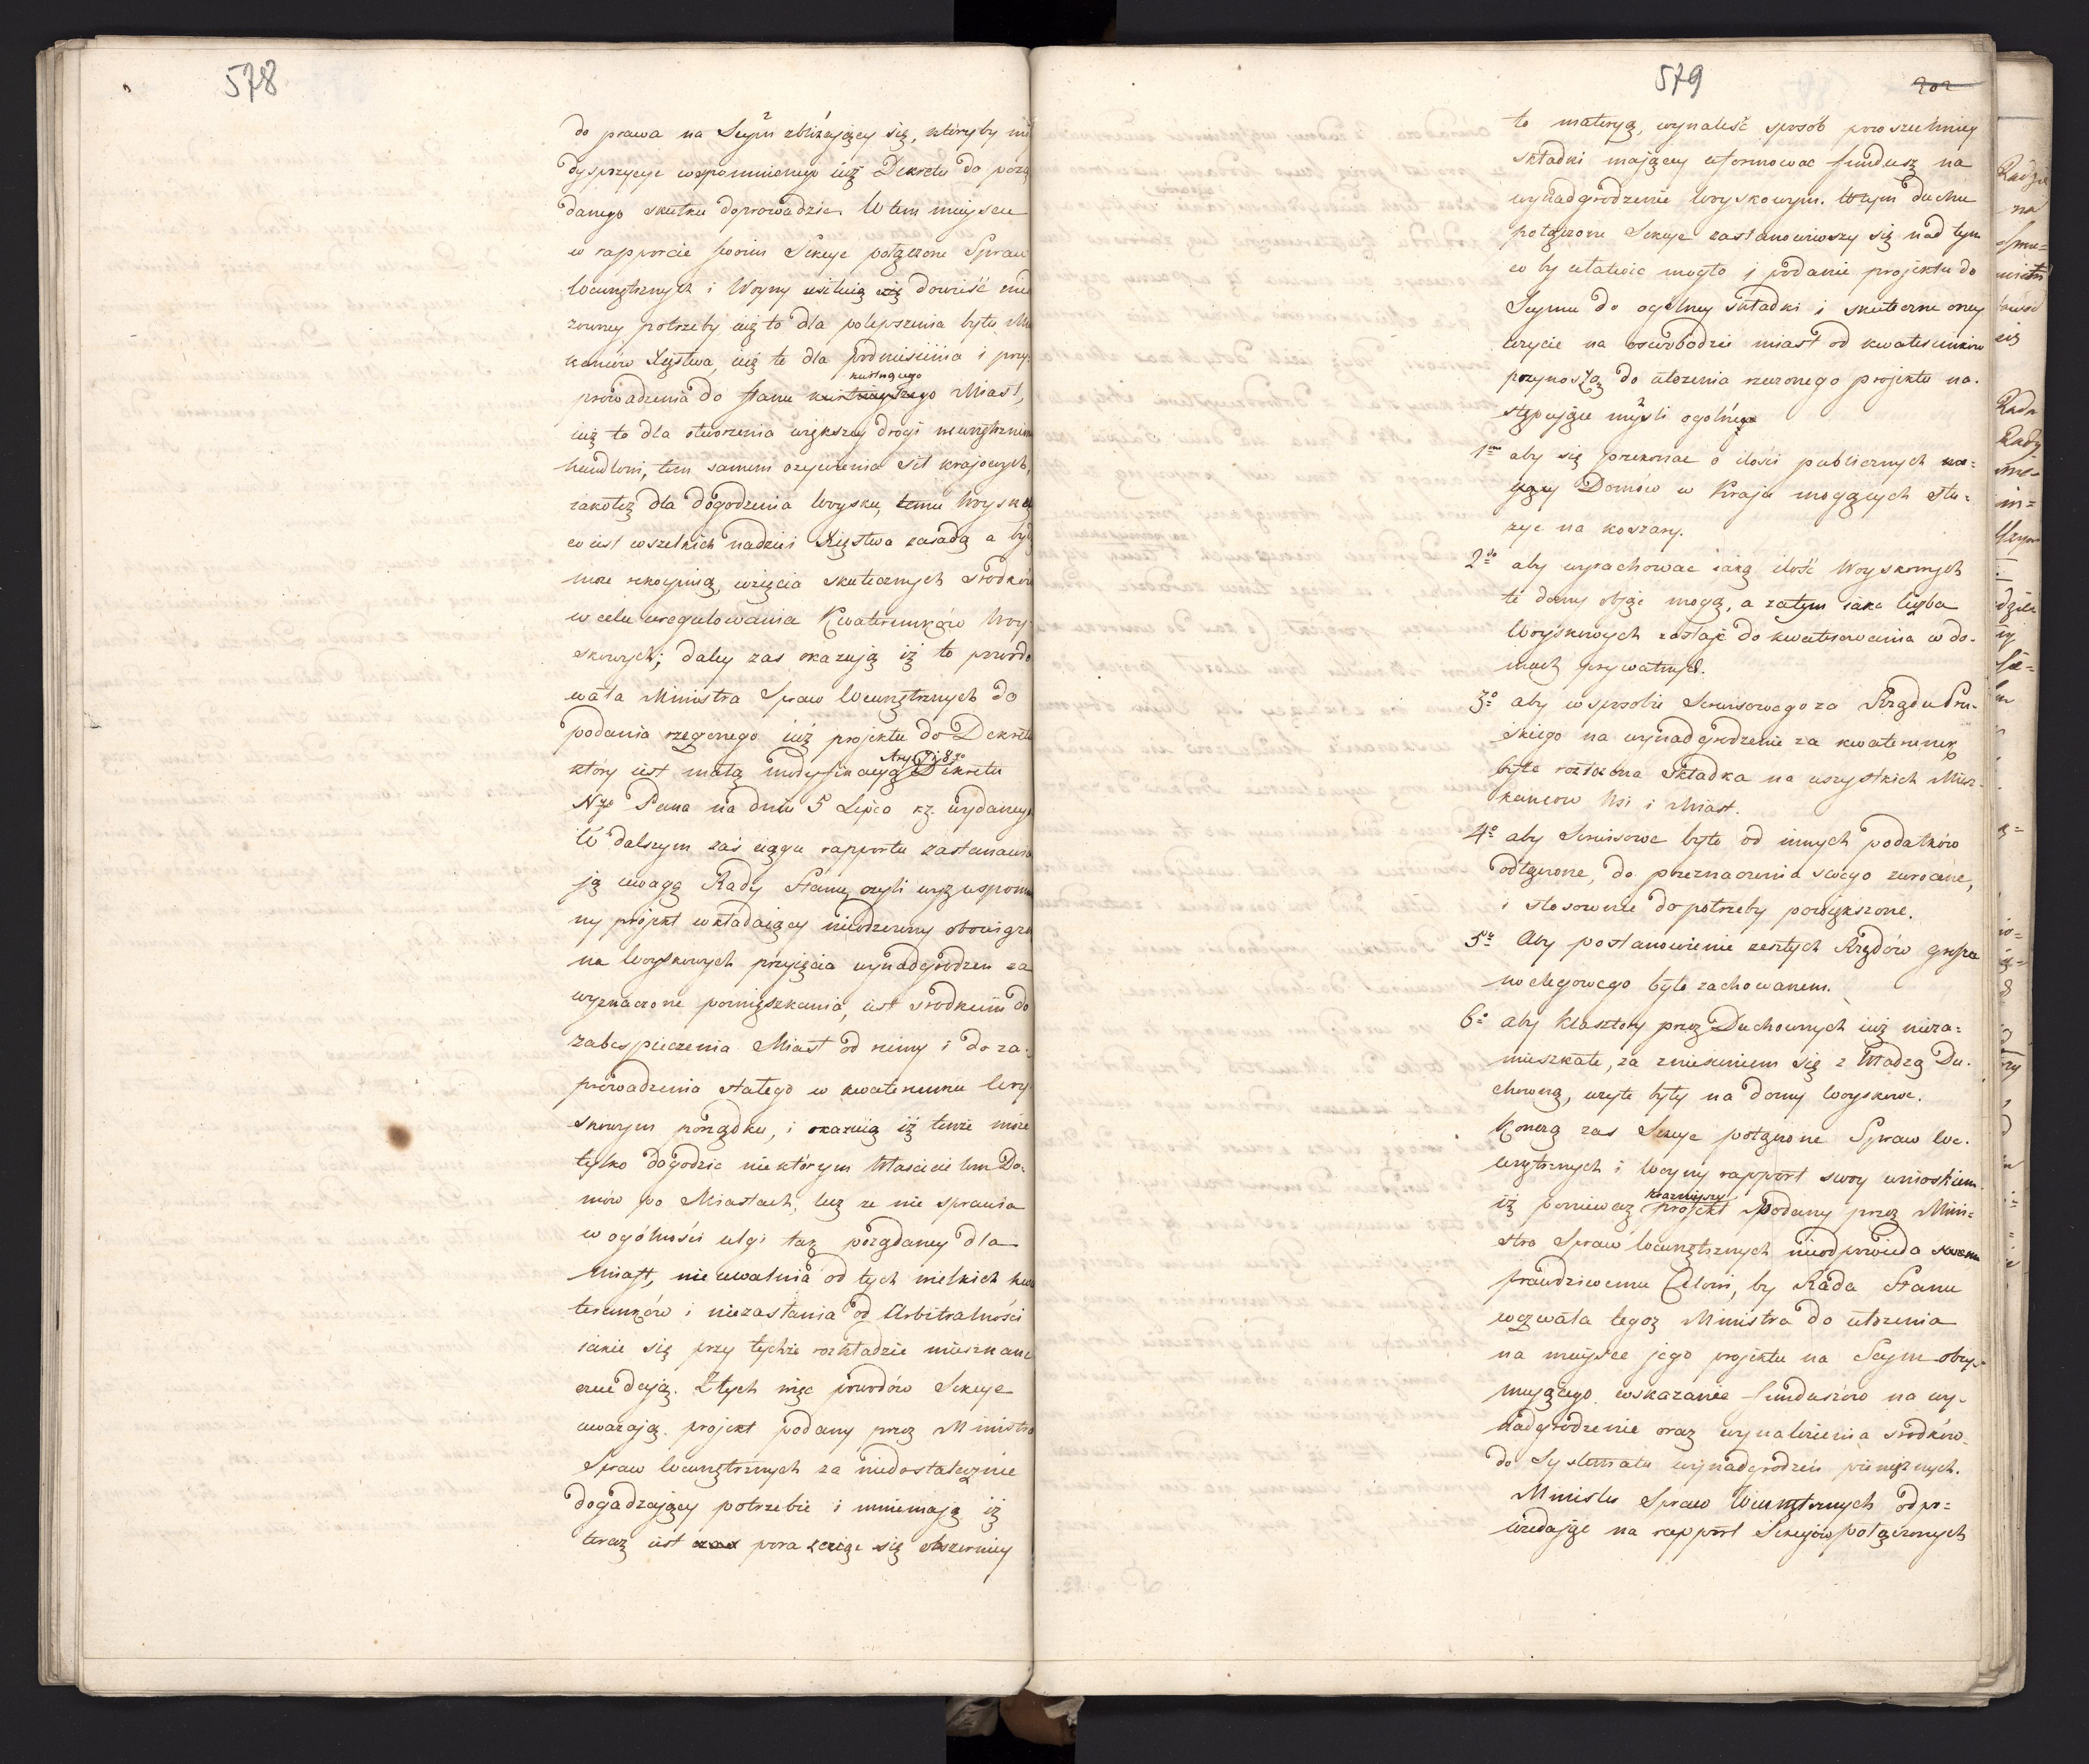 578
do prawa na Seym zbliżaiący się, któryby mó
dyspozycye wspomnionego iuż Dekretu do pożą
danego skutku doprowadzić. W tem mieyscu
w rapporcie swoim Sekcye połączone Spraw
Wewnętrznych i Woyny usiłuią dowieść
potrzeby iuż to dla polepszenia bytu
Xięstwa, iuż to dla podniesienia i przy
prowadzenia do stanu kwitnącego Miast,
iuż to dla otworzenia większey drogi wewnętrznem
handlowi, tem samem ożywienia sił kraiowych,
iakoteż dla dogodzenia Woysku, temu Woysku
co iest wszelkich nadziei Xięstwa zasadą a
może rekoymią, wzięcia skutecznych środków
w celu uregulowania Kwaterunków Woy-
skowych; daley zas okazują iż to powodo
wało Ministra Spraw Wewnętrznych do
podania rzeczonego iuż projektu do Dekretu
który iest małą modyfikacyą Artyk. 8go Dekretu
Ngo Pana na dniu 5 Lipca r.z. wydanego
W dalszym zaś ciągu rapportu zastanawia
ją uwagę Rady Stanu, czyli wyż wspomn
ny projekt wkładaiący nieodzowny obowiąze
na Woyskowych przyięcia wynadgrodzeń za
wyznaczone pomięszkania, iest srodkiem do
zabespieczenia Miast od ruiny i do za-
prowadzenia stałego w kwaterunku Woy-
skowym porządku, i okazuią iż tenże może
tylko dogodzić niektórym Właścicielom Do-
mów po Miastach, lecz że nie sprawia
w ogólności ulgi tak pożądaney dla
Miast, nie uwalnia od tych wielkich kwa
terunków i niezasłania od Arbitralności
iakie się przy tychże rozkładzie mieszkańc
czuć daią. Z tych więc powodów Sekcye
uważają projekt podany przez Ministra
Spraw Wewnętrznych za niedostatecznie
dogadzaiący potrzebie i mniemają iż
teraz iest pora zaiąć się obszerniey
579
202
tą materyą, wynaleść sposób powszechney
składki maiącey uformować fundusz na
wynadgrodzenie Woyskowym. W tym duchu
połączone Sekcye zastanowiwszy się nad tym
co by ułatwić mogło i podanie projektu do
Seymu do ogólney składki i skuteczne oney
użycie na oswobodzenie miast od kwaterunków
przynoszą do ułożenia rzeczonego projektu na-
stępuiące myśli ogólne
1mo aby się przekonać o ilości publicznych na-
Domów w Kraju mogących słu-
żyć na koszary.
2do aby wyrachować iaką ilość Woyskowych
te domy obiąć mogą, a zatym iaka liczba
Woyskowych zostaie do kwaterowania w do-
mach prywatnych.
3o aby w sposobie Serwisowego za Rządu Pru-
skiego na wynadgrodzenie za kwaterunek
była rozłożona składka na wszystkich Miesz-
kańców Wsi i Miast.
4o aby Serwisowe było od innych podatków
odłączone, do przeznaczenia swego zwrócone,
i stosownie do potrzeby powiększone.
5o Aby postanowienie zeszłych Rządów
noclegowego było zachowanem.
6o aby klasztory przez Duchownych iuż nieza-
mieszkałe, za zniesieniem się z Władzą Du-
chowną, użyte były na domy Woyskowe.
Kończą zas Sekcye połączone Spraw We-
wnętrznych i Woyny rapport swoy wnioskiem
iż ponieważ projekt podany przez Mini-
stra Spraw Wewnętrznych nieodpowiada
prawdziwemu Celowi, by Rada Stanu
wezwała tegoż Ministra do ułożenia
na mieysce jego projektu na Seym obey-
muiącego wskazanie funduszów na wy-
nadgrodzenie oraz wynalezienia srodków
do Systematu wynadgrodzeń pieniężnych.
Minister Spraw Wewnętrznych odpo-
wiedaiąc na rapport Sekcyów połączonych